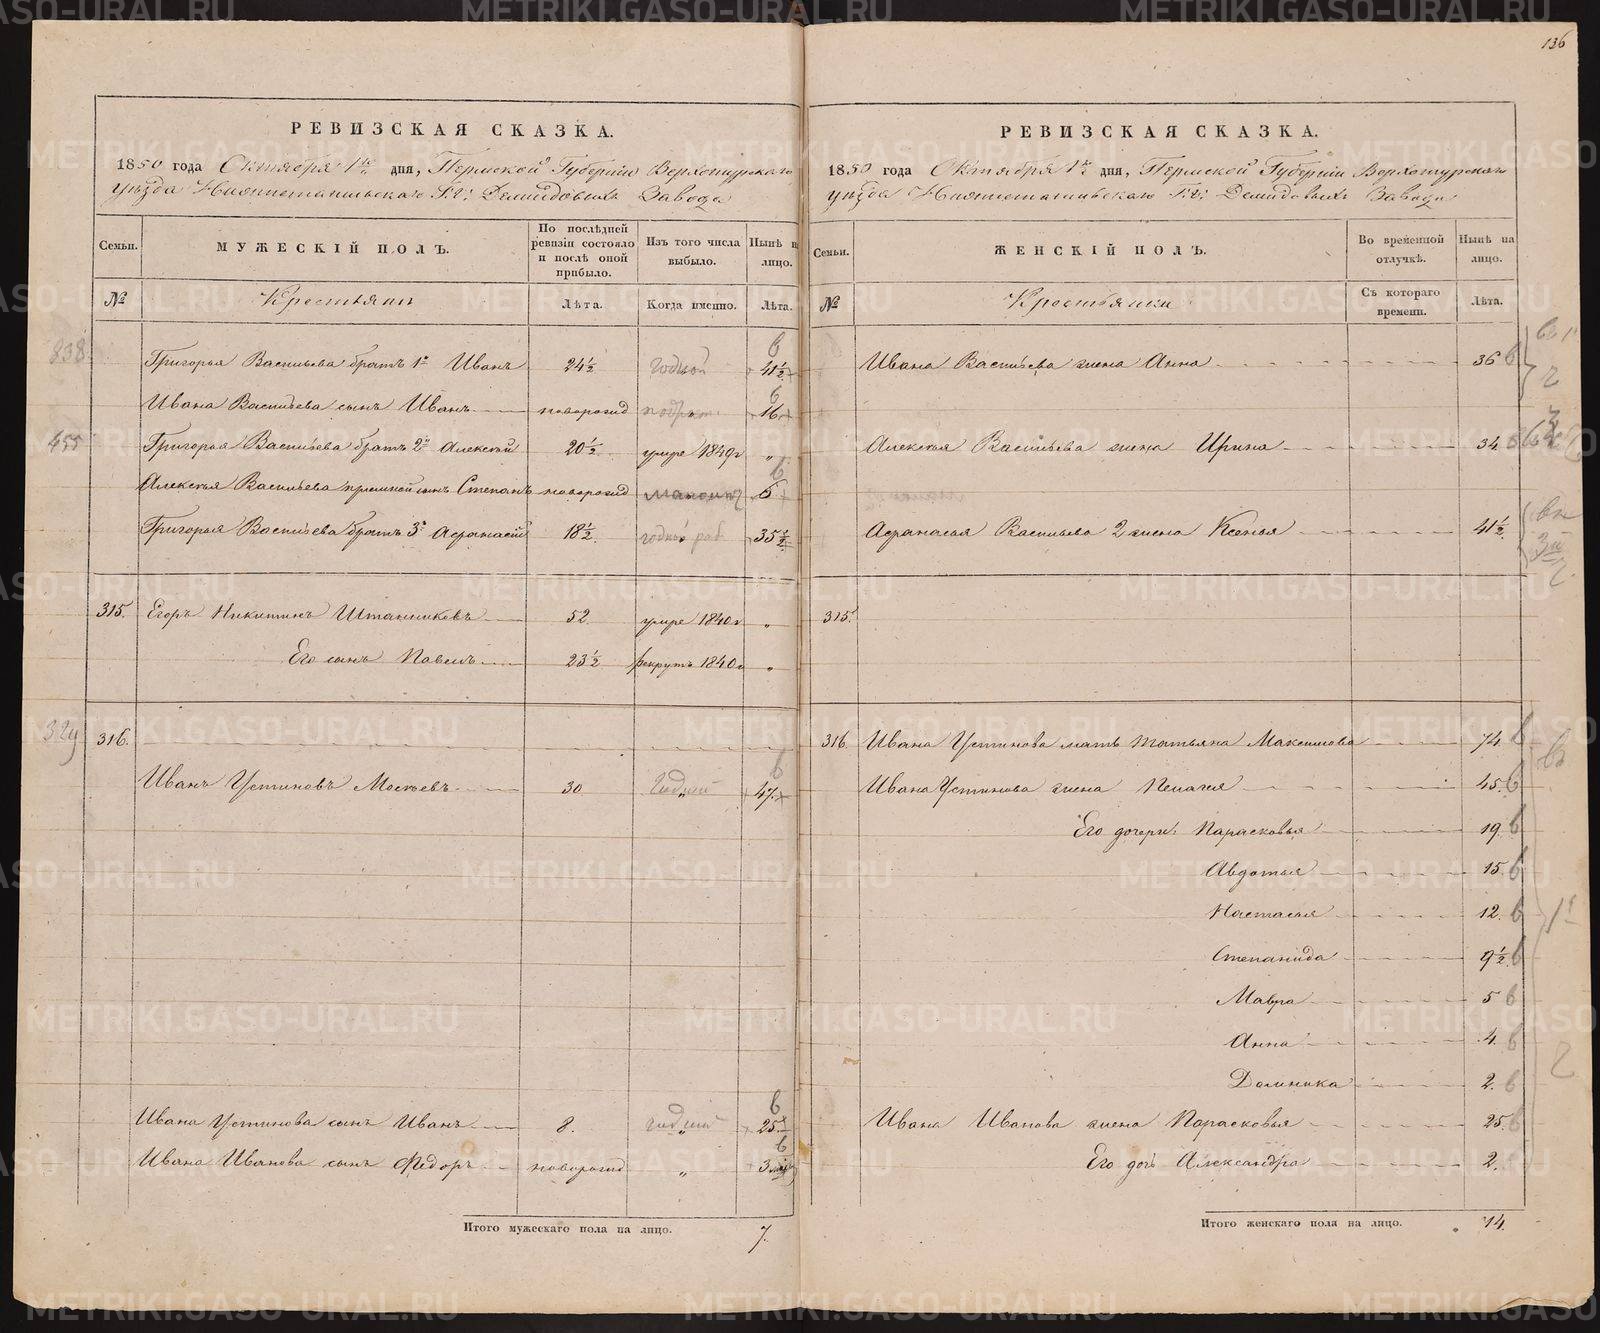 136
РЕВИЗСКАЯ СКАЗКА.
1850 года Октября 1го дня, Пермской Губернiи Верхотурскаго
уѣзда Нижнетагильскаго Г.г. Демидовыхъ Завода
Семьи.
МУЖЕСКІЙ ПОЛЪ.
По послѣдней ревизіи состояло и послѣ оной прибыло.
Изъ того числа выбыло.
Нынѣ на лицо.
№
Крестьяни
Лѣта.
Когда именно.
Лѣта.
838
Григорья Васильева братъ 1й Иванъ 24½ годной 41½
Ивана Васильева сынъ Иванъ новорожд 16
455
Григорья Васильева братъ 2й Алексѣй 20½ умре 1849г „
Алексѣя Васильева сынъ Степанъ новорожд 6
Григорья Васильева братъ 3й Афанасiй 18½ годный раб 35½
315. Егоръ Никитинъ Штанниковъ 52 умре 1840г „
Его сынъ Павелъ 23½ рекрутъ 1840г „
329 316.
Иванъ Устиновъ Мосѣевъ 30 годный 47
Ивана Устинова сынъ Иванъ 8. годный 25½
Ивана Иванова сынъ Федоръ новорожд „ 3
Итого мужескаго пола на лицо. 7.
РЕВИЗСКАЯ СКАЗКА.
1850 года Октября 1го дня, Пермской Губернiи Верхотурскаго
уѣзда Нижнетагильскаго Г.г. Демидовыхъ Завода
Семьи.
ЖЕНСКІЙ ПОЛЪ.
Во временной отлучкѣ.
Нынѣ на лицо.
№
Крестьянки
Съ котораго времени.
Лѣта.
Ивана Васильева жена Анна 36
Алексѣя Васильева жена Ирина 34
Афанасья Васильева 2 жена Ксенья 41½
315.
316. Ивана Устинова мать Татьяна Максимова 74.
Ивана Устинова жена Пелагея 45.
Его дочери: Парасковья 19
Авдотья 15.
Настасья 12.
Степанида 9½
Мавра 5
Анна 4.
Домника 2.
Ивана Иванова жена Парасковья 25
Его дочь Александра 2.
Итого женскаго пола на лицо. 14.
METRIKI.GASO-URAL.RU